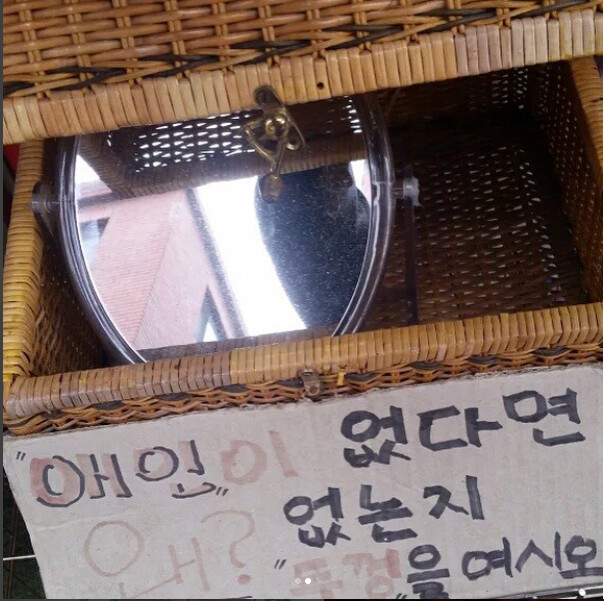 "애인"이 없다면
없는지
왜? "뚜껑"을 여시오